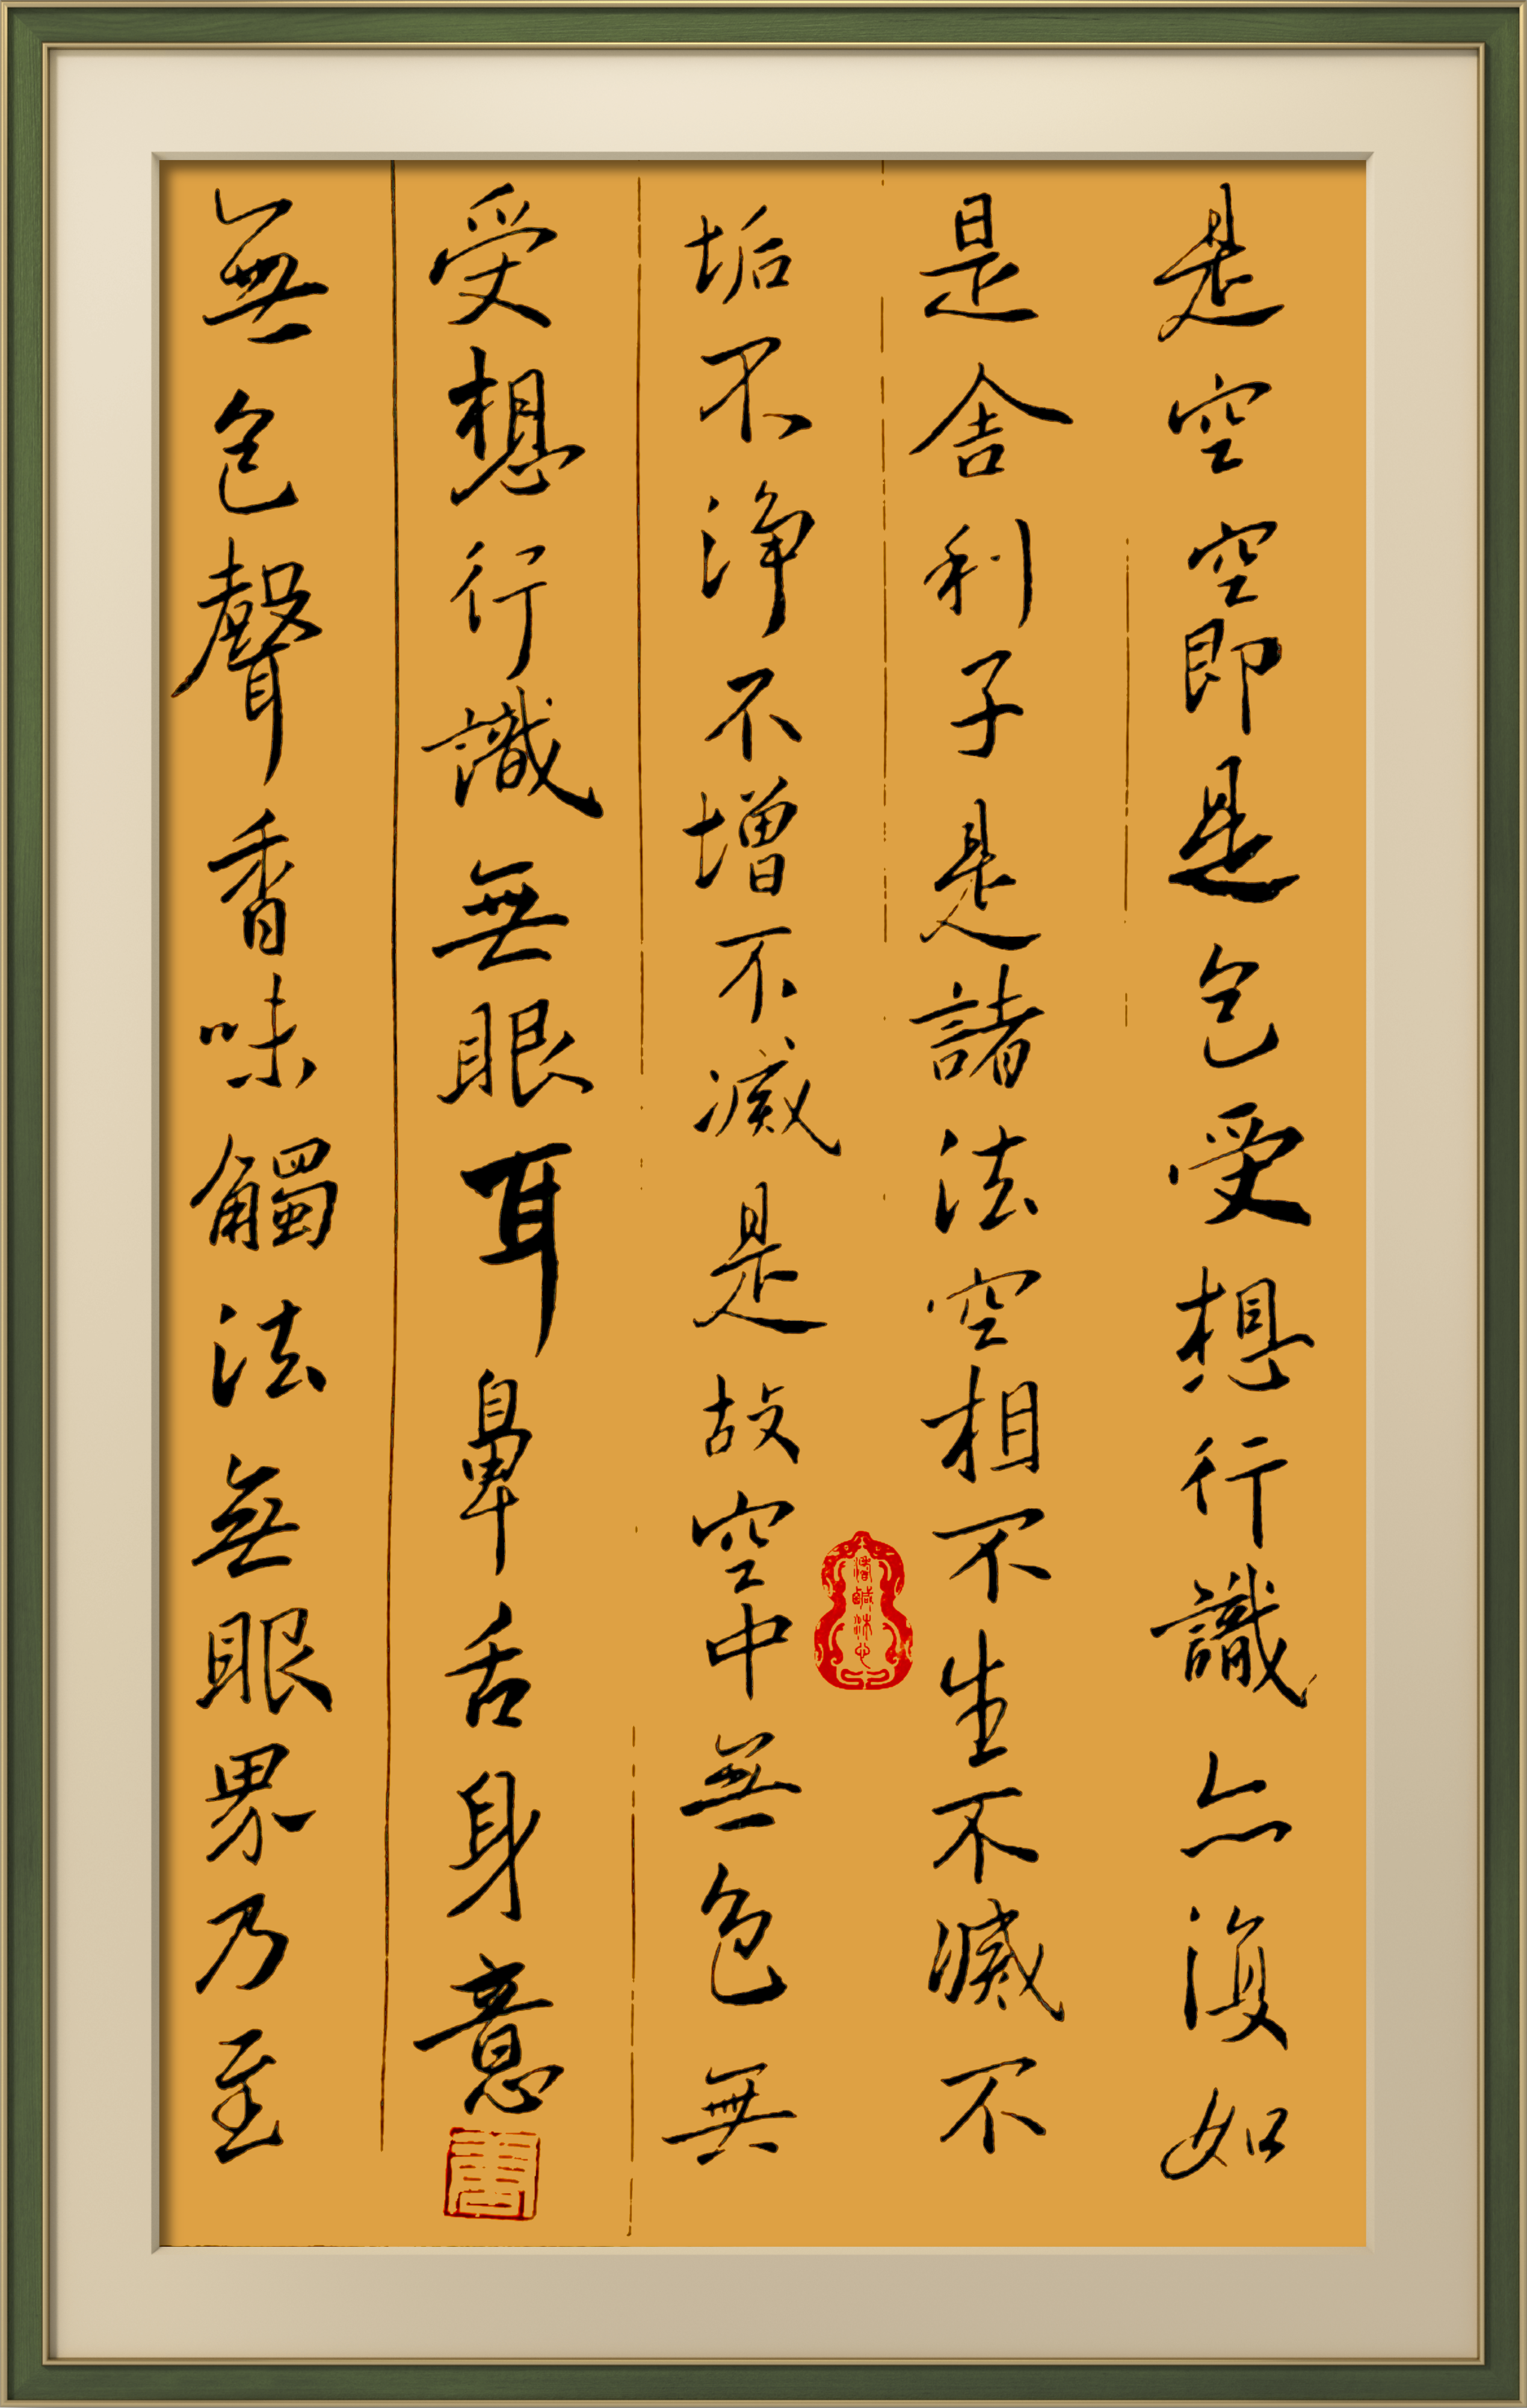 是空空即是色受想行識亦復如
是舍利子是諸法空相不生不滅不
垢不淨不增不減是故空中無色無
受想行識無眼耳鼻舌身意
無色聲香味觸法無眼界乃至